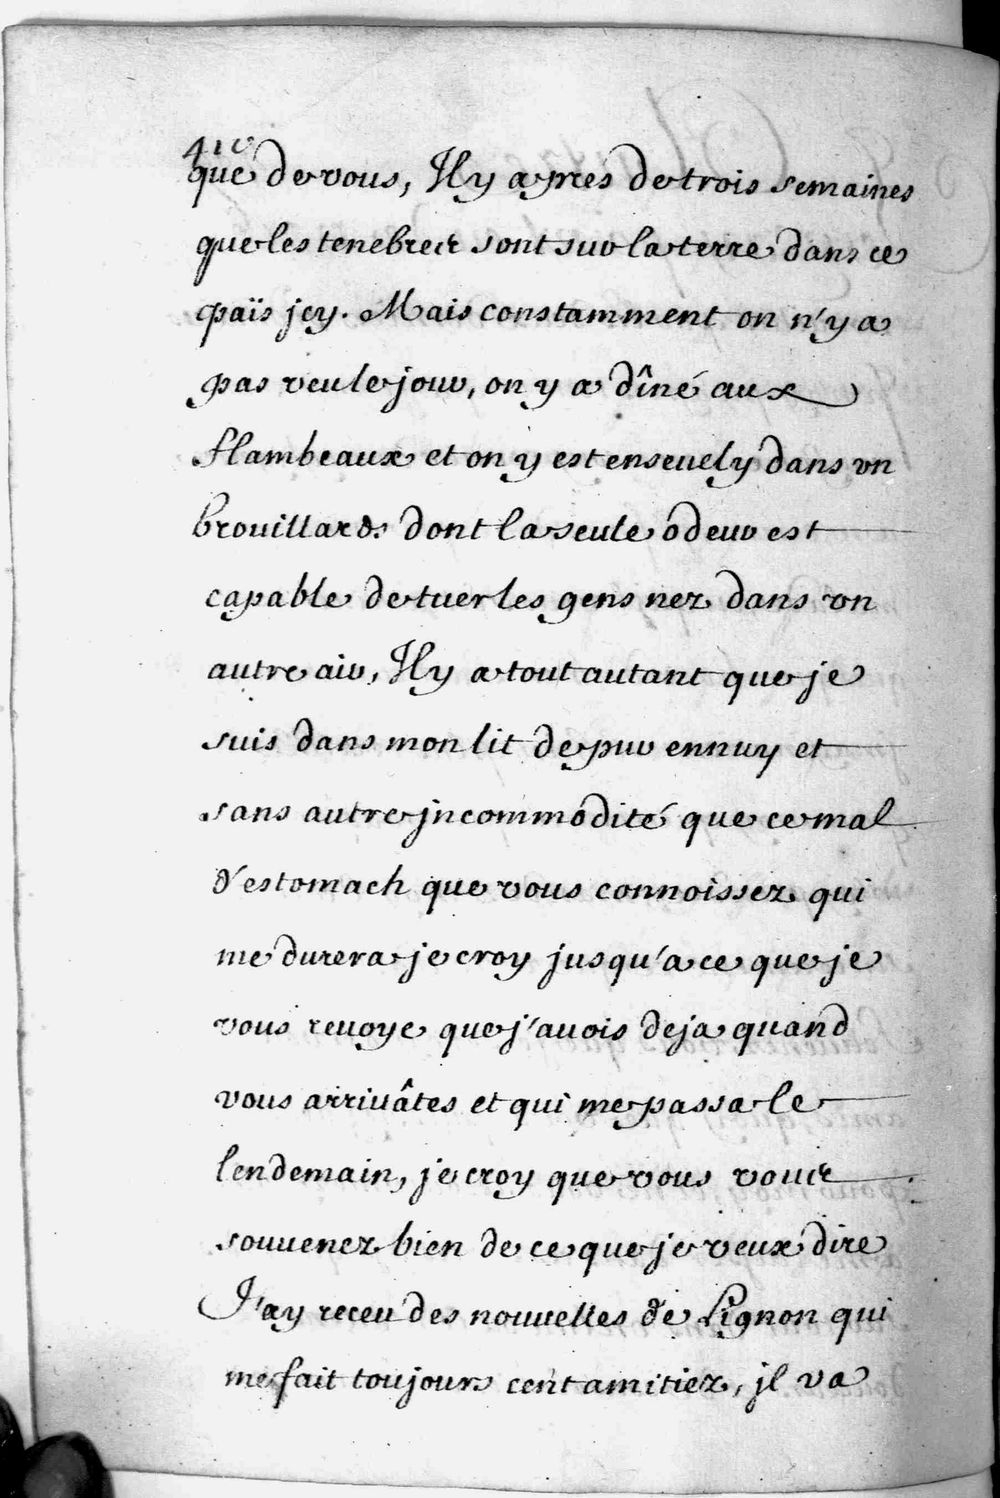 410
que de vous, Il y a pres de trois semaines
que les tenebres sont sur la terre dans ce
païs jcy. Mais constamment on n'y a
pas veu le jour, on y a dîné aux
flambeaux et on y est enseuely dans vn
brouillard. dont la seule odeur est
capable de tuer les gens nez dans vn
autre air, Il y a tout autant que je
suis dans mon lit de pur ennuy et
sans autre jncommodité que ce mal
d'estomach que vous connoissez qui
me durera je croy jusqu'a ce que je
vous reuoye que j'auois deja quand
vous arriuâtes et qui me passa le
lendemain, je croy que vous vous
souuenez bien de ce que je veux dire
J'ay receu des nouuelles de Lignon qui
me fait toujours cent amitiez, jl va